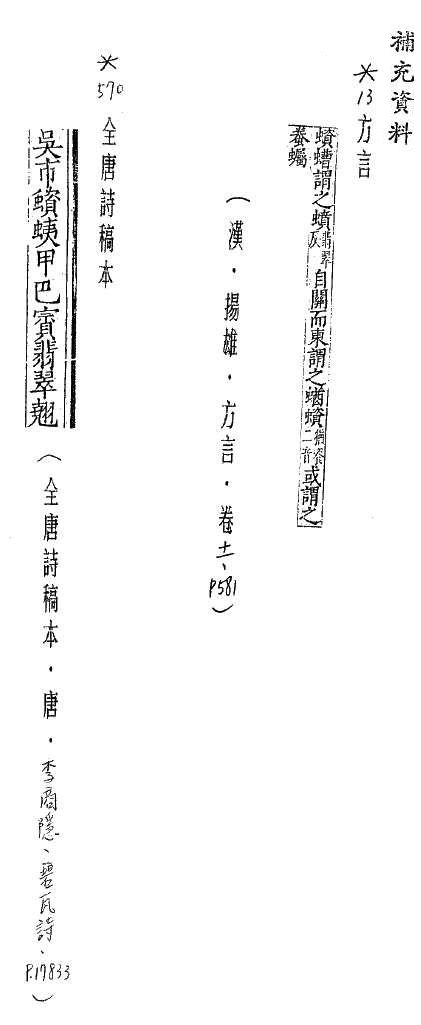 補充資料
*13方言
蠀螬謂之蟦翡翠反自關而東謂之蝤蠀猶餈二音或謂之
䖭蠾
（漢．揚雄．方言．卷十一、P581）
*570全唐詩稿本
吳市蠀蛦甲巴賨翡翠翹
（全唐詩稿本．唐．李商隱、碧瓦詩、P.17833）